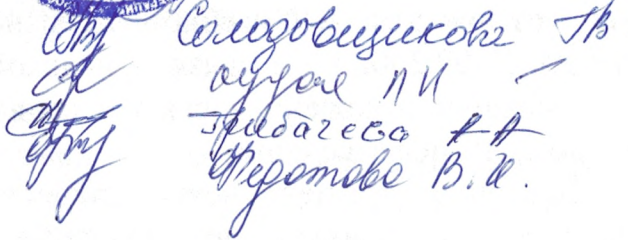 Солодовщикова ГВ
ЛИ
Грибачева АА
Федотова В.И.